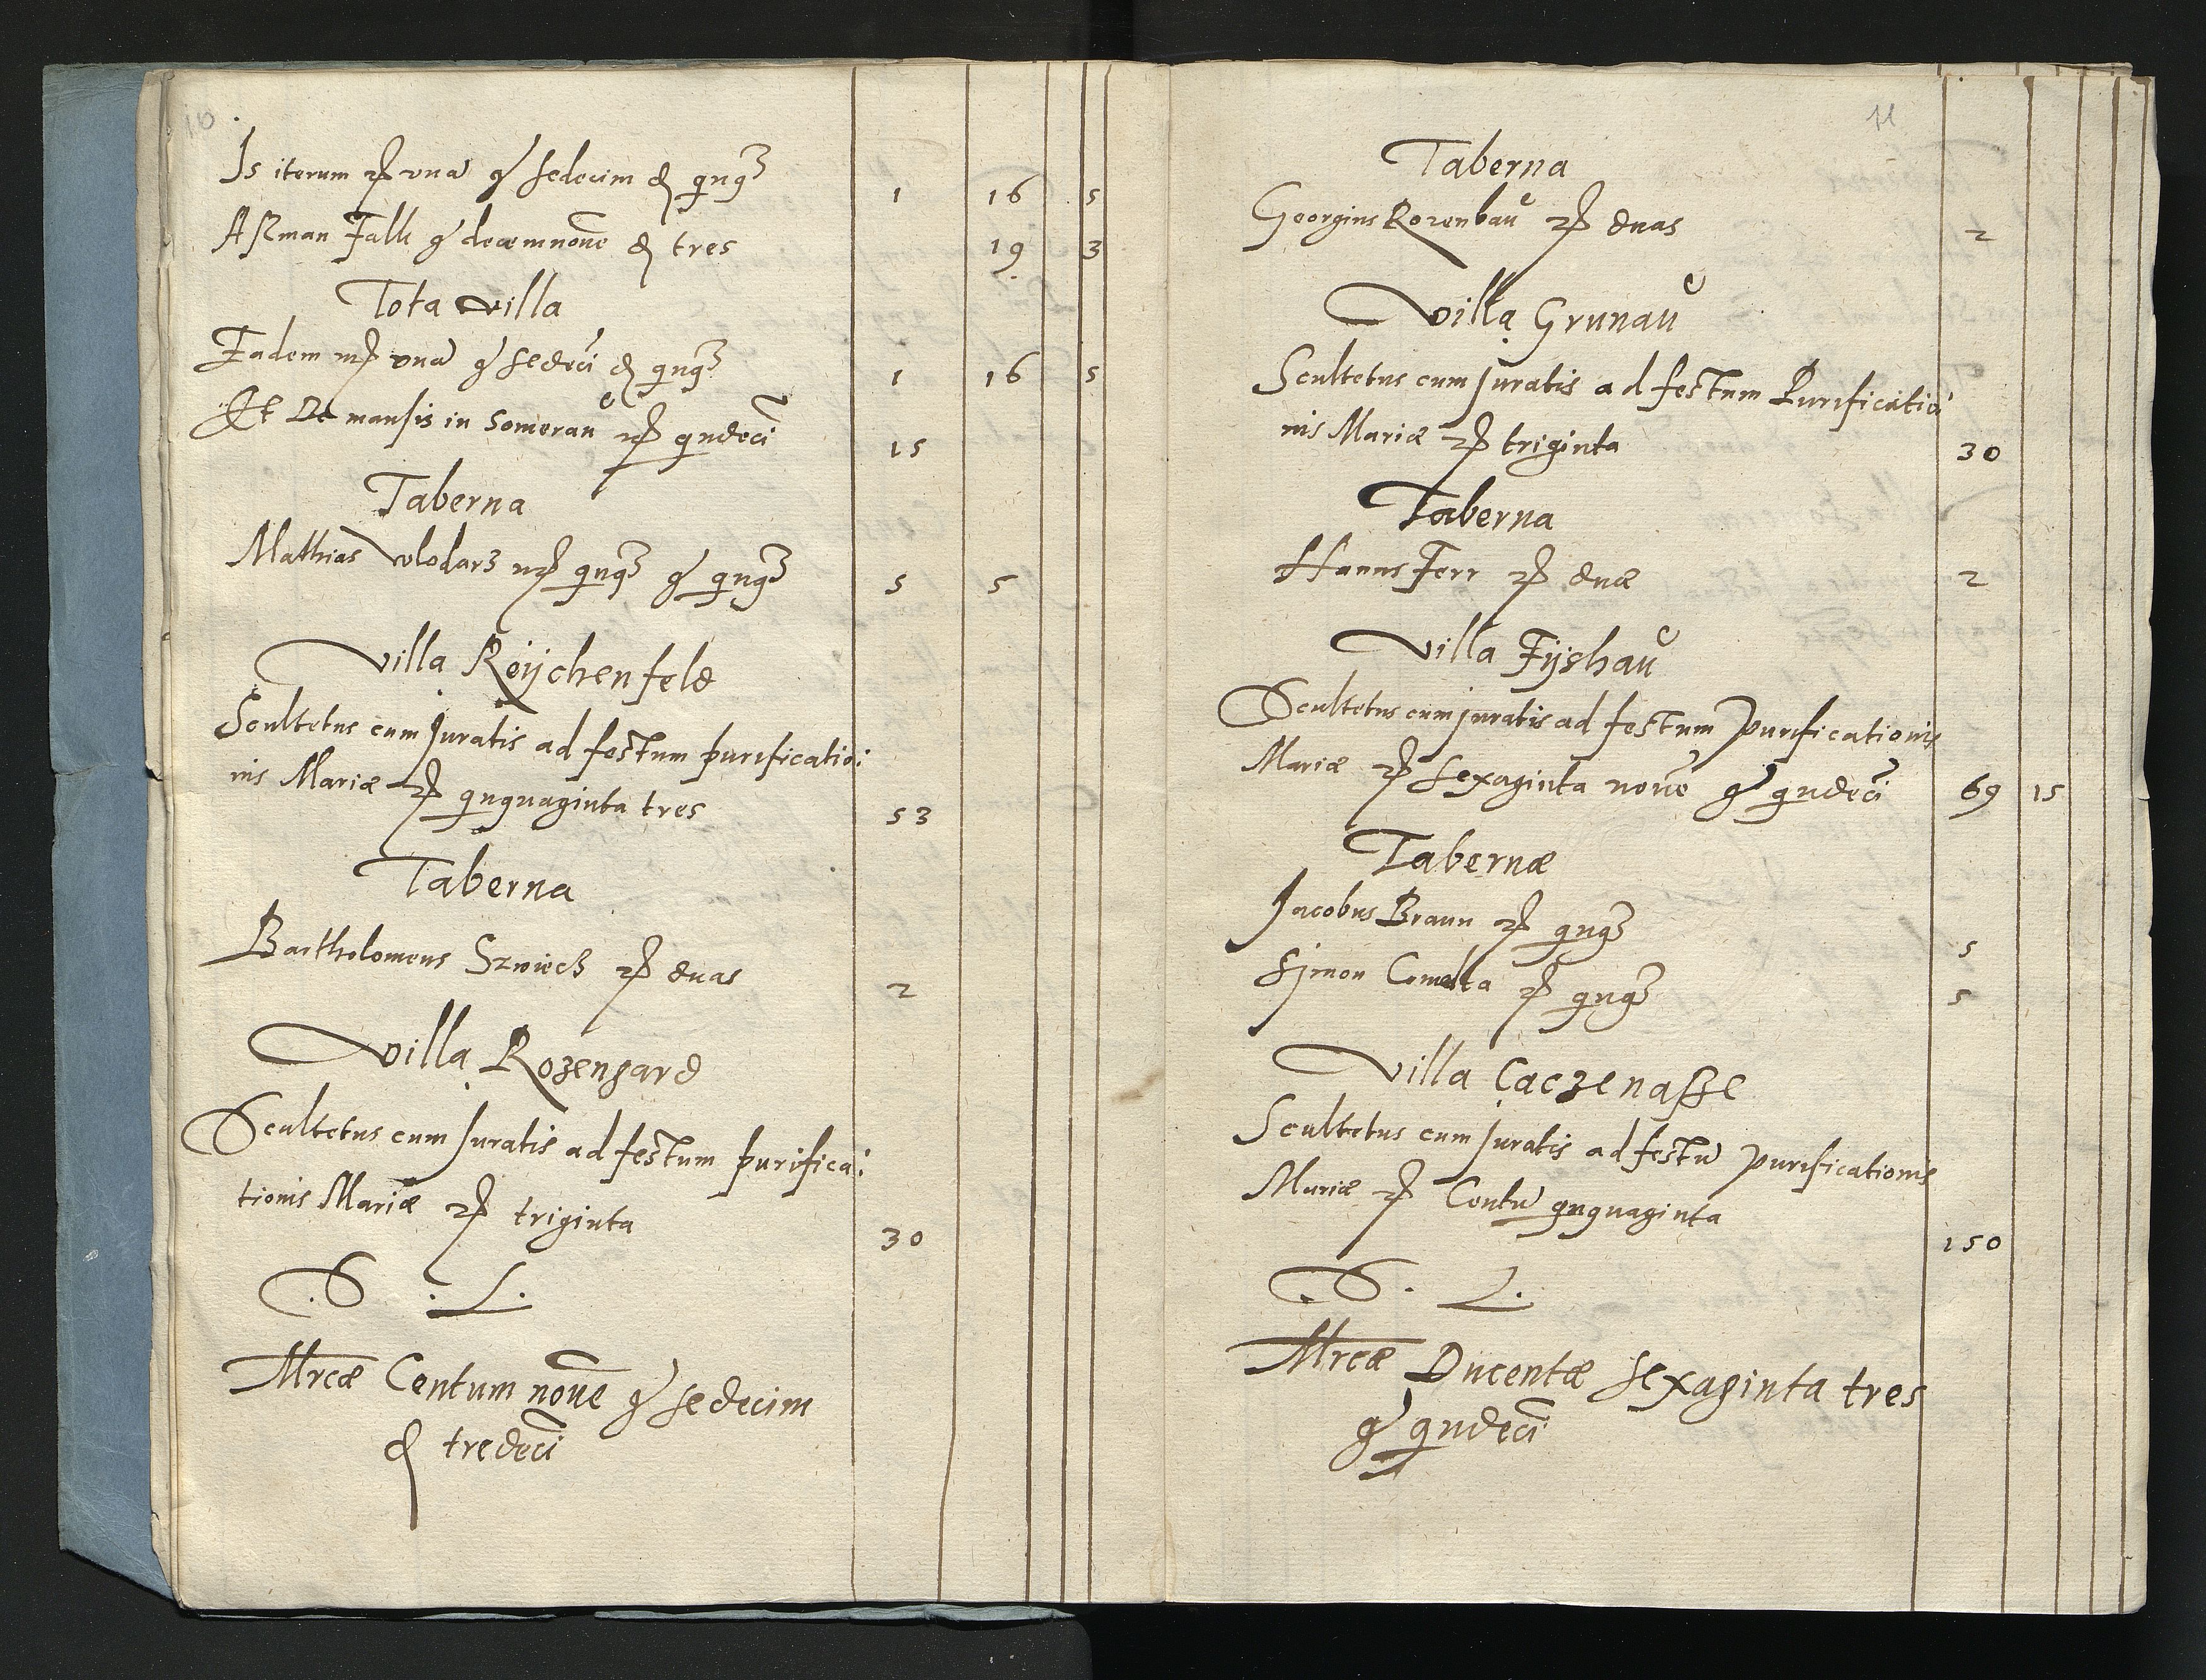 10
Is iterum mr̃ vnã gr̃ sedecim d̃ qnq3 1 16 5
Aßman Falk gr̃ decemnouẽ d̃ tres 19 3
Tota villa
Eadem mr̃ vnã gr̃ sedecĩ d̃ qnq3 1 16 5
Et De mansis in Someraŭ mr̃ qndecĩ 15
Taberna
Mathias wlodar3 mr̃ qnq3 gr̃ qnq3 5 5
villa Reÿchenfeld
Scultetus cum Juratis ad festum purificatio:
nis Mariæ mr̃ qnquaginta tres 53
Taberna
Bartholomeus Szwiech mr̃ duas 2
villa Rozengard
Scultetus cum Juratis ad festum purifica:
tionis Mariæ mr̃ triginta 30
S. L.
Mrcæ Centum nouẽ gr̃ sedecim
d̃ tredecĩ
11
Taberna
Georgius Rozenbaŭ mr̃ duas 2
villa Grunaŭ
Scultetus cum Juratis ad festum Purificatio:
nis Mariæ mr̃ triginta 30
Taberna
Hanns Ferr mr̃ duæ 2
villa Fÿshaŭ
Scultetus cum juratis ad festum purificationis
Mariæ mr̃ sexaginta nouẽ gr̃ qndecĩ 69 15
Tabernæ
Jacobus Braun mr̃ qnq3 5
Sÿmon mr̃ qnq3 5
villa Caczenasße
Scultetus cum Juratis ad festũ purificationis
Mariæ mr̃ Centũ qnquaginta 150
S. L.
Mrcæ Ducentæ sexaginta tres
gr̃ qndecĩ